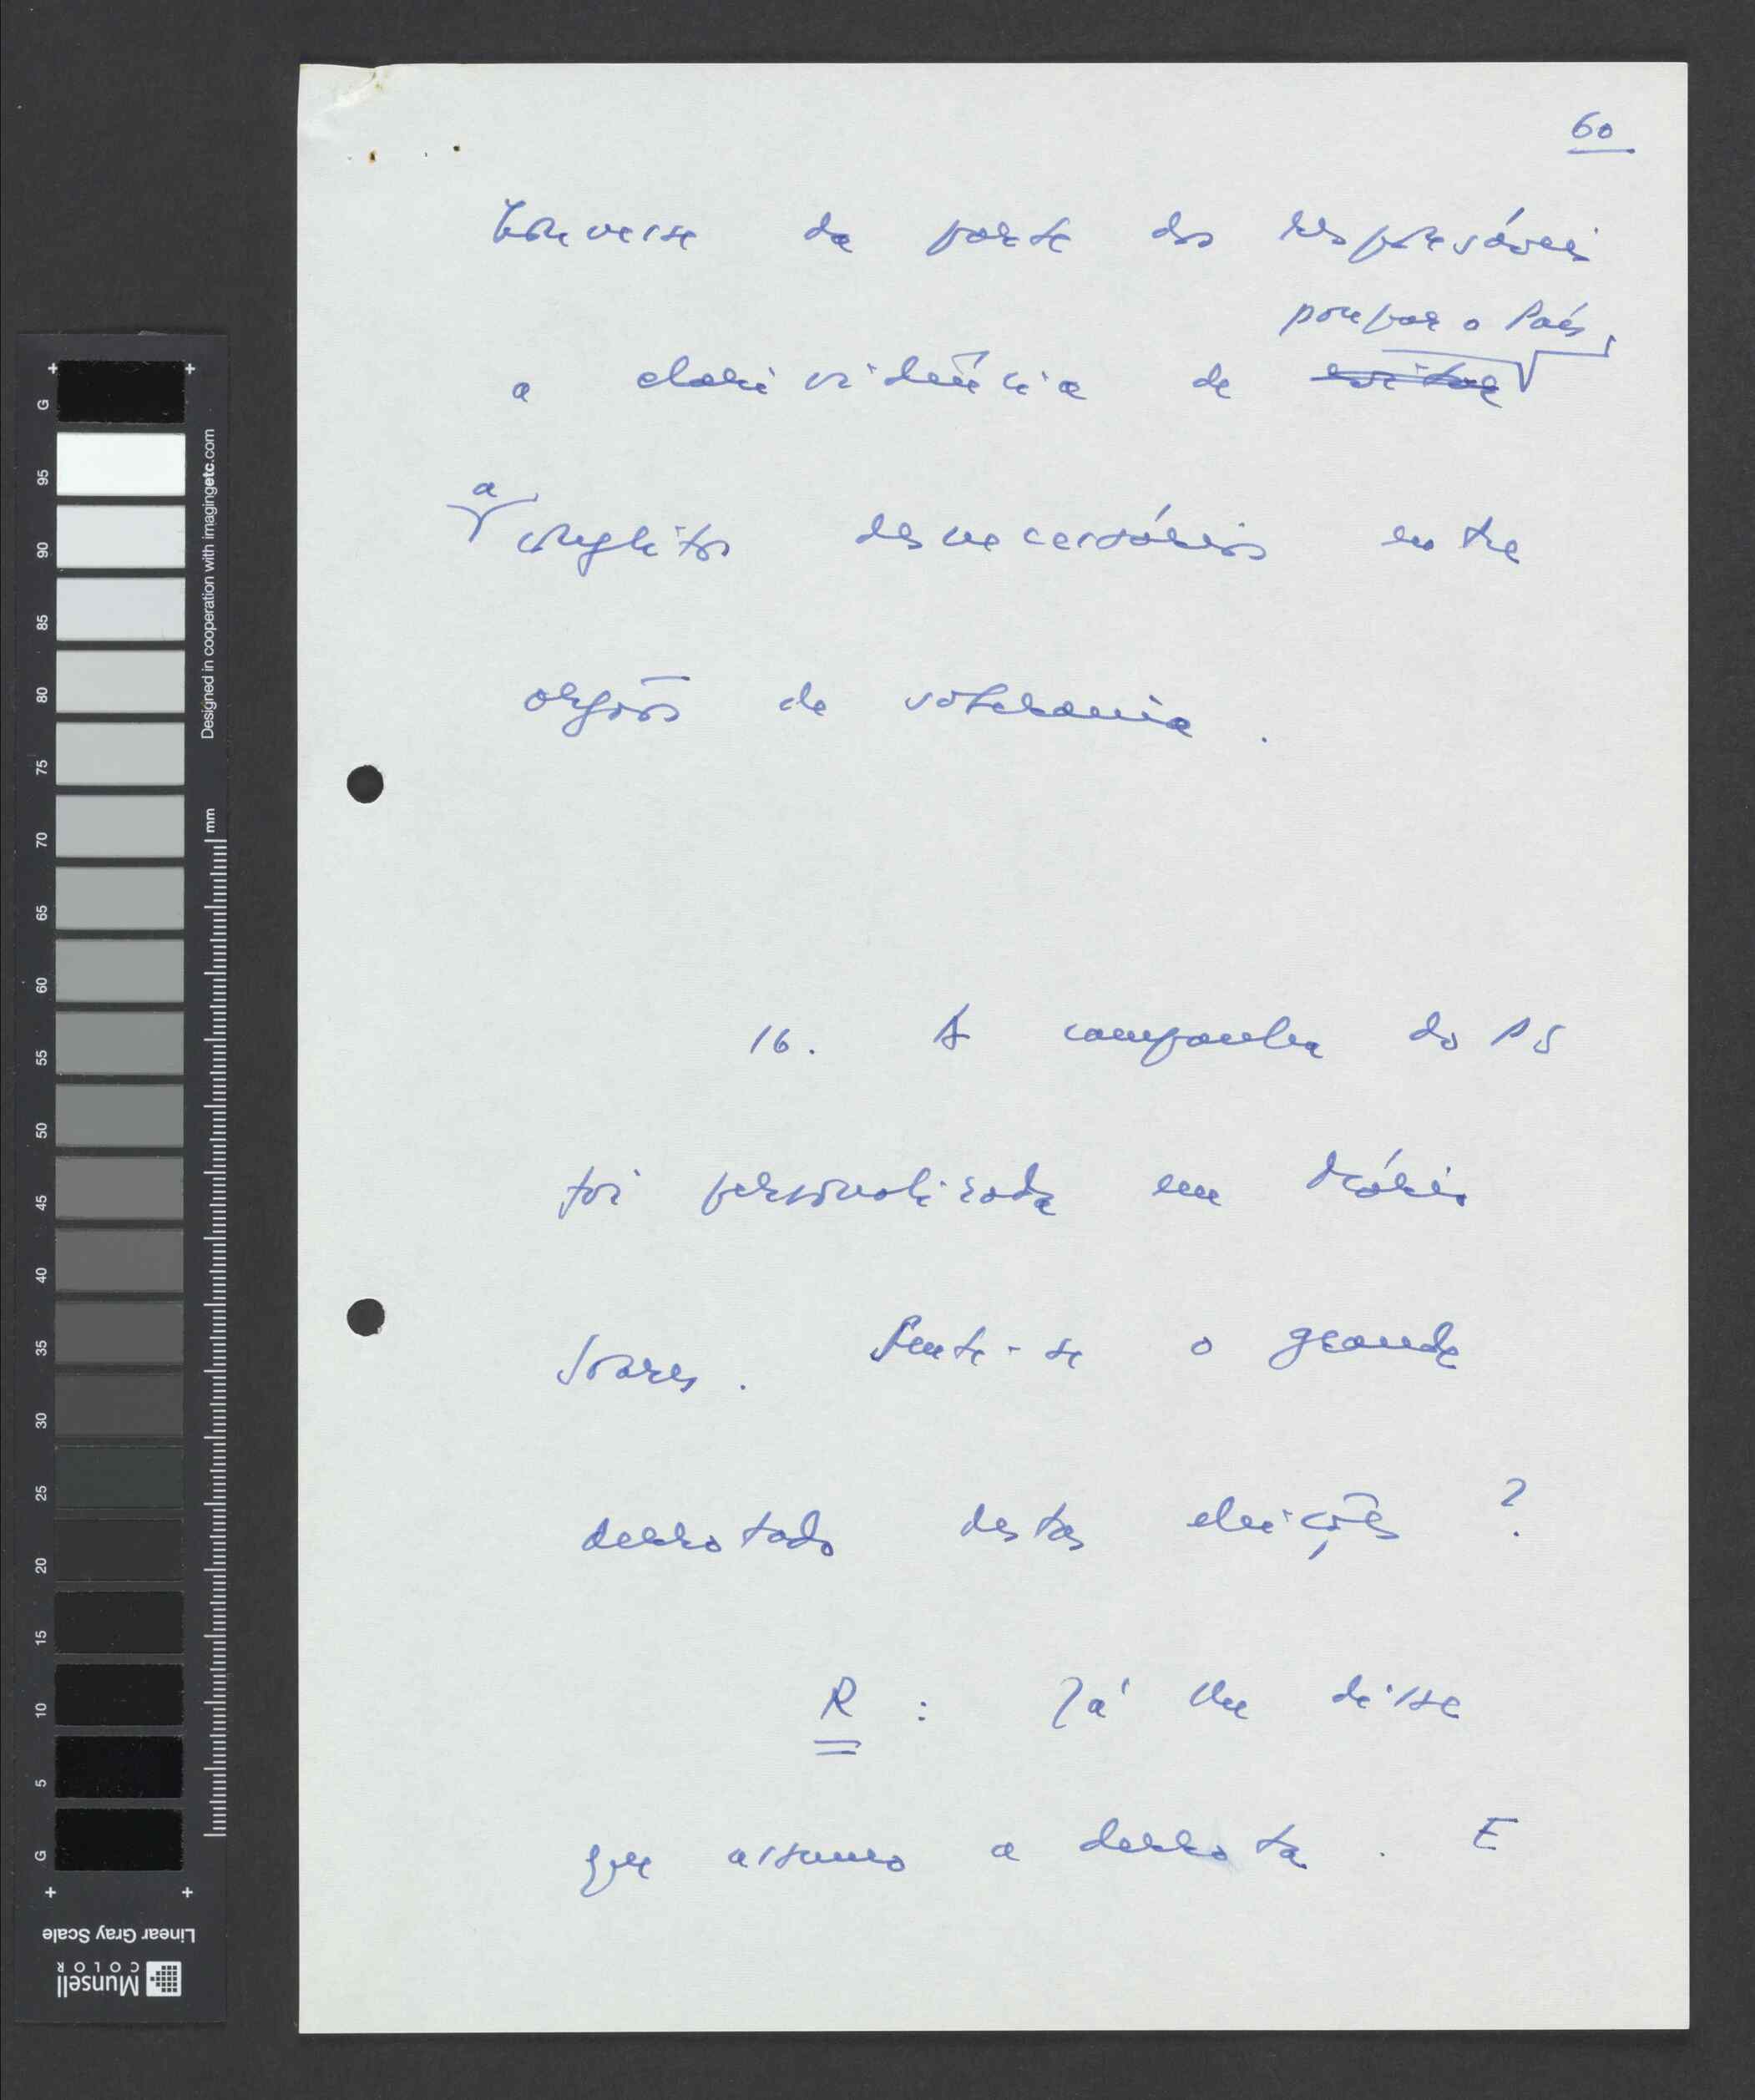 60
houvesse da parte dos responsáveis
poupar o País,
a clarividência de evitar
a
conflitos desnecessários entre
orgãos de soberania.
16. A campanha do PS
foi personalizada em Mário
Soares. Sente-se o grande
derrotado destas eleições?
R: Já lhe disse
que assumo a derrota. E
G 95 90 85 80 75 70 65 60 55 50 45 40 35 30 25 20 15 10 5 G
Designed in cooperation with imagingetc.com
mm
Linear Gray Scale
Munsell
COLOR